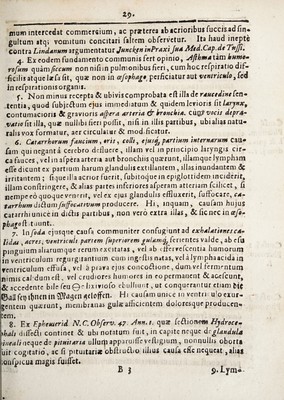 29.
mum intercedat commercium, ac præterea ab acrioribus succis ad sin-
gultum atq; vomitum concitari saltem observetur. Ita haud ineptè
contra Lindanum argumentatur Juncken in Praxi sua Med. Cap. de Tussi.
4. Ex eodem fundamento communis fert opinio, Asthma tàm humo-
rosum quàm siccum non nisi in pulmonibus fieri, cum hoc respiratio dif-
ficilis atque læsa sit, quæ non in œsophago perficiatur aut ventriculo, sed
in respirationis organis.
5. Non minus recepta & ubivis comprobata est illa de raucedine sen-
tentia, quod subjectum ejus immediatum & quidem levioris sit larynx,
contumacioris & gravioris aspera arteria & bronchia. cùm vocis depra-
vatio sit illa, quæ nullibi fieri possit, nisi in illis partibus, ubi alias natu-
ralis vox formatur, aer circulatur & modificatur.
6. Catarrhorum faucium, oris, colli, ejusq; partium internarum cau-
sam qui negant è cerebro defluere, illam vel in principio laryngis cir-
ca fauces, vel in aspera arteria aut bronchiis quærunt, illamque lympham
esse dicunt ex partium harum glandulis exstillantem, illas inundantem &
irritantem; si quidem illa acrior fuerit, subitoque in epiglottidem inciderit,
illam constringere, & alias partes inferiores asperam arteriam scilicet, si
nempe eò quoque vnerit, vel ex ejus glandulis effluxerit, suffocare, ca-
tarrhum dictum suffocativum producere. Hi, inquam, causam hujus
catarrhi unicè in dictis partibus, non verò extra illas, & sic nec in œso-
phago est tuunt.
7. In soda ejusque causa communiter confugiunt ad exhalationes ca-
lidas, acres, ventriculi partem superiorem gulamq; ferientes valde, ab esu
pinguium aliarumque rerum excitatas, vel ab effervescentia humorum
in ventriculum regurgitantium cum ingestis natas, vel à lympha acida in
ventriculum effusa, vel à prava ejus concoctione, dum vel fermentum
nimis calidum est, vel crudiores humores in eo permanent & acescunt,
& accedente bile seu lixivioso ebulliunt, ut conquerantur etiam die
Gall sey ihnen in Magen geloffen. Hi causam unicè in ventriculo exur-
gentem quærunt, membranas gulæ afficientem doloremque producen-
tem.
8. Ex Ephemerid. N. C. Observ. 47. Ann. 1. quæ sectionem Hydroce-
phali dissecti continet & ubi notatum fuit, in capite neque de glandula
pineali neque de pituitaria ullum apparuisse vestigium, nonnullis oborta
fuit cogitatio, ac si pituitariæ obstructio illius causa esse nequeat, alias
conspicua magis fuisset.
B 3 9. Lym-